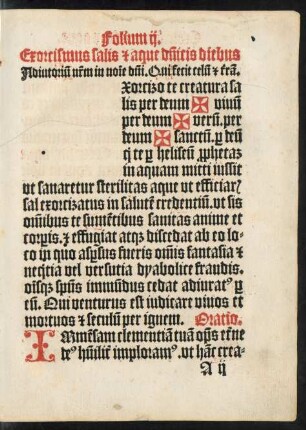 Folium ij.
Exorcismus salis ⁊ aque dñicis diebus
Adiutoriũ nr̃m in noĩe dñi. Qui fecit celũ ⁊ trã.
Xorcizo te creatura sa
lis per deum ✠ viuũ
per deum ✠ verũ. per
deum ✠ sanctũ. ꝑ deũ
qͥ te ꝑ heliseũ prophetaꝫ
in aquam mitti iussit
vt sanaretur sterilitas aque vt efficiarꝫ
sal exorcizatus in salutẽ credentiũ. vt sis
oĩnibus te sumẽtibus sanitas anime et
corpis. ⁊ effugiat atqꝫ discedat ab eo lo-
co in quo aspsus fueris omĩs fantasia ⁊
neq̃tia vel versutia dyabolice fraudis.
oĩsqꝫ spũs immũdus cedat adiuratꝰ ꝑ
eũ. Qui venturus est iudicare viuos et
mortuos ⁊ seculũ per ignem. Oratio.
IMmẽsam clementiã tuã oṗs eterne
deꝰ hũilit̃ imploramꝰ. vt hãc crea-
A ij